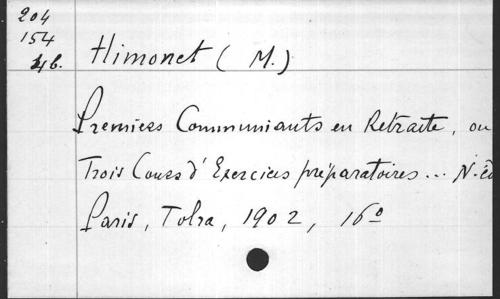 204
154
46.
Himonet ( M.)
Premiers Communiants en Retraite, ou
Trois Cours d'Exercices préparatoires... N. éd
Paris, Tolra, 1902, 16º